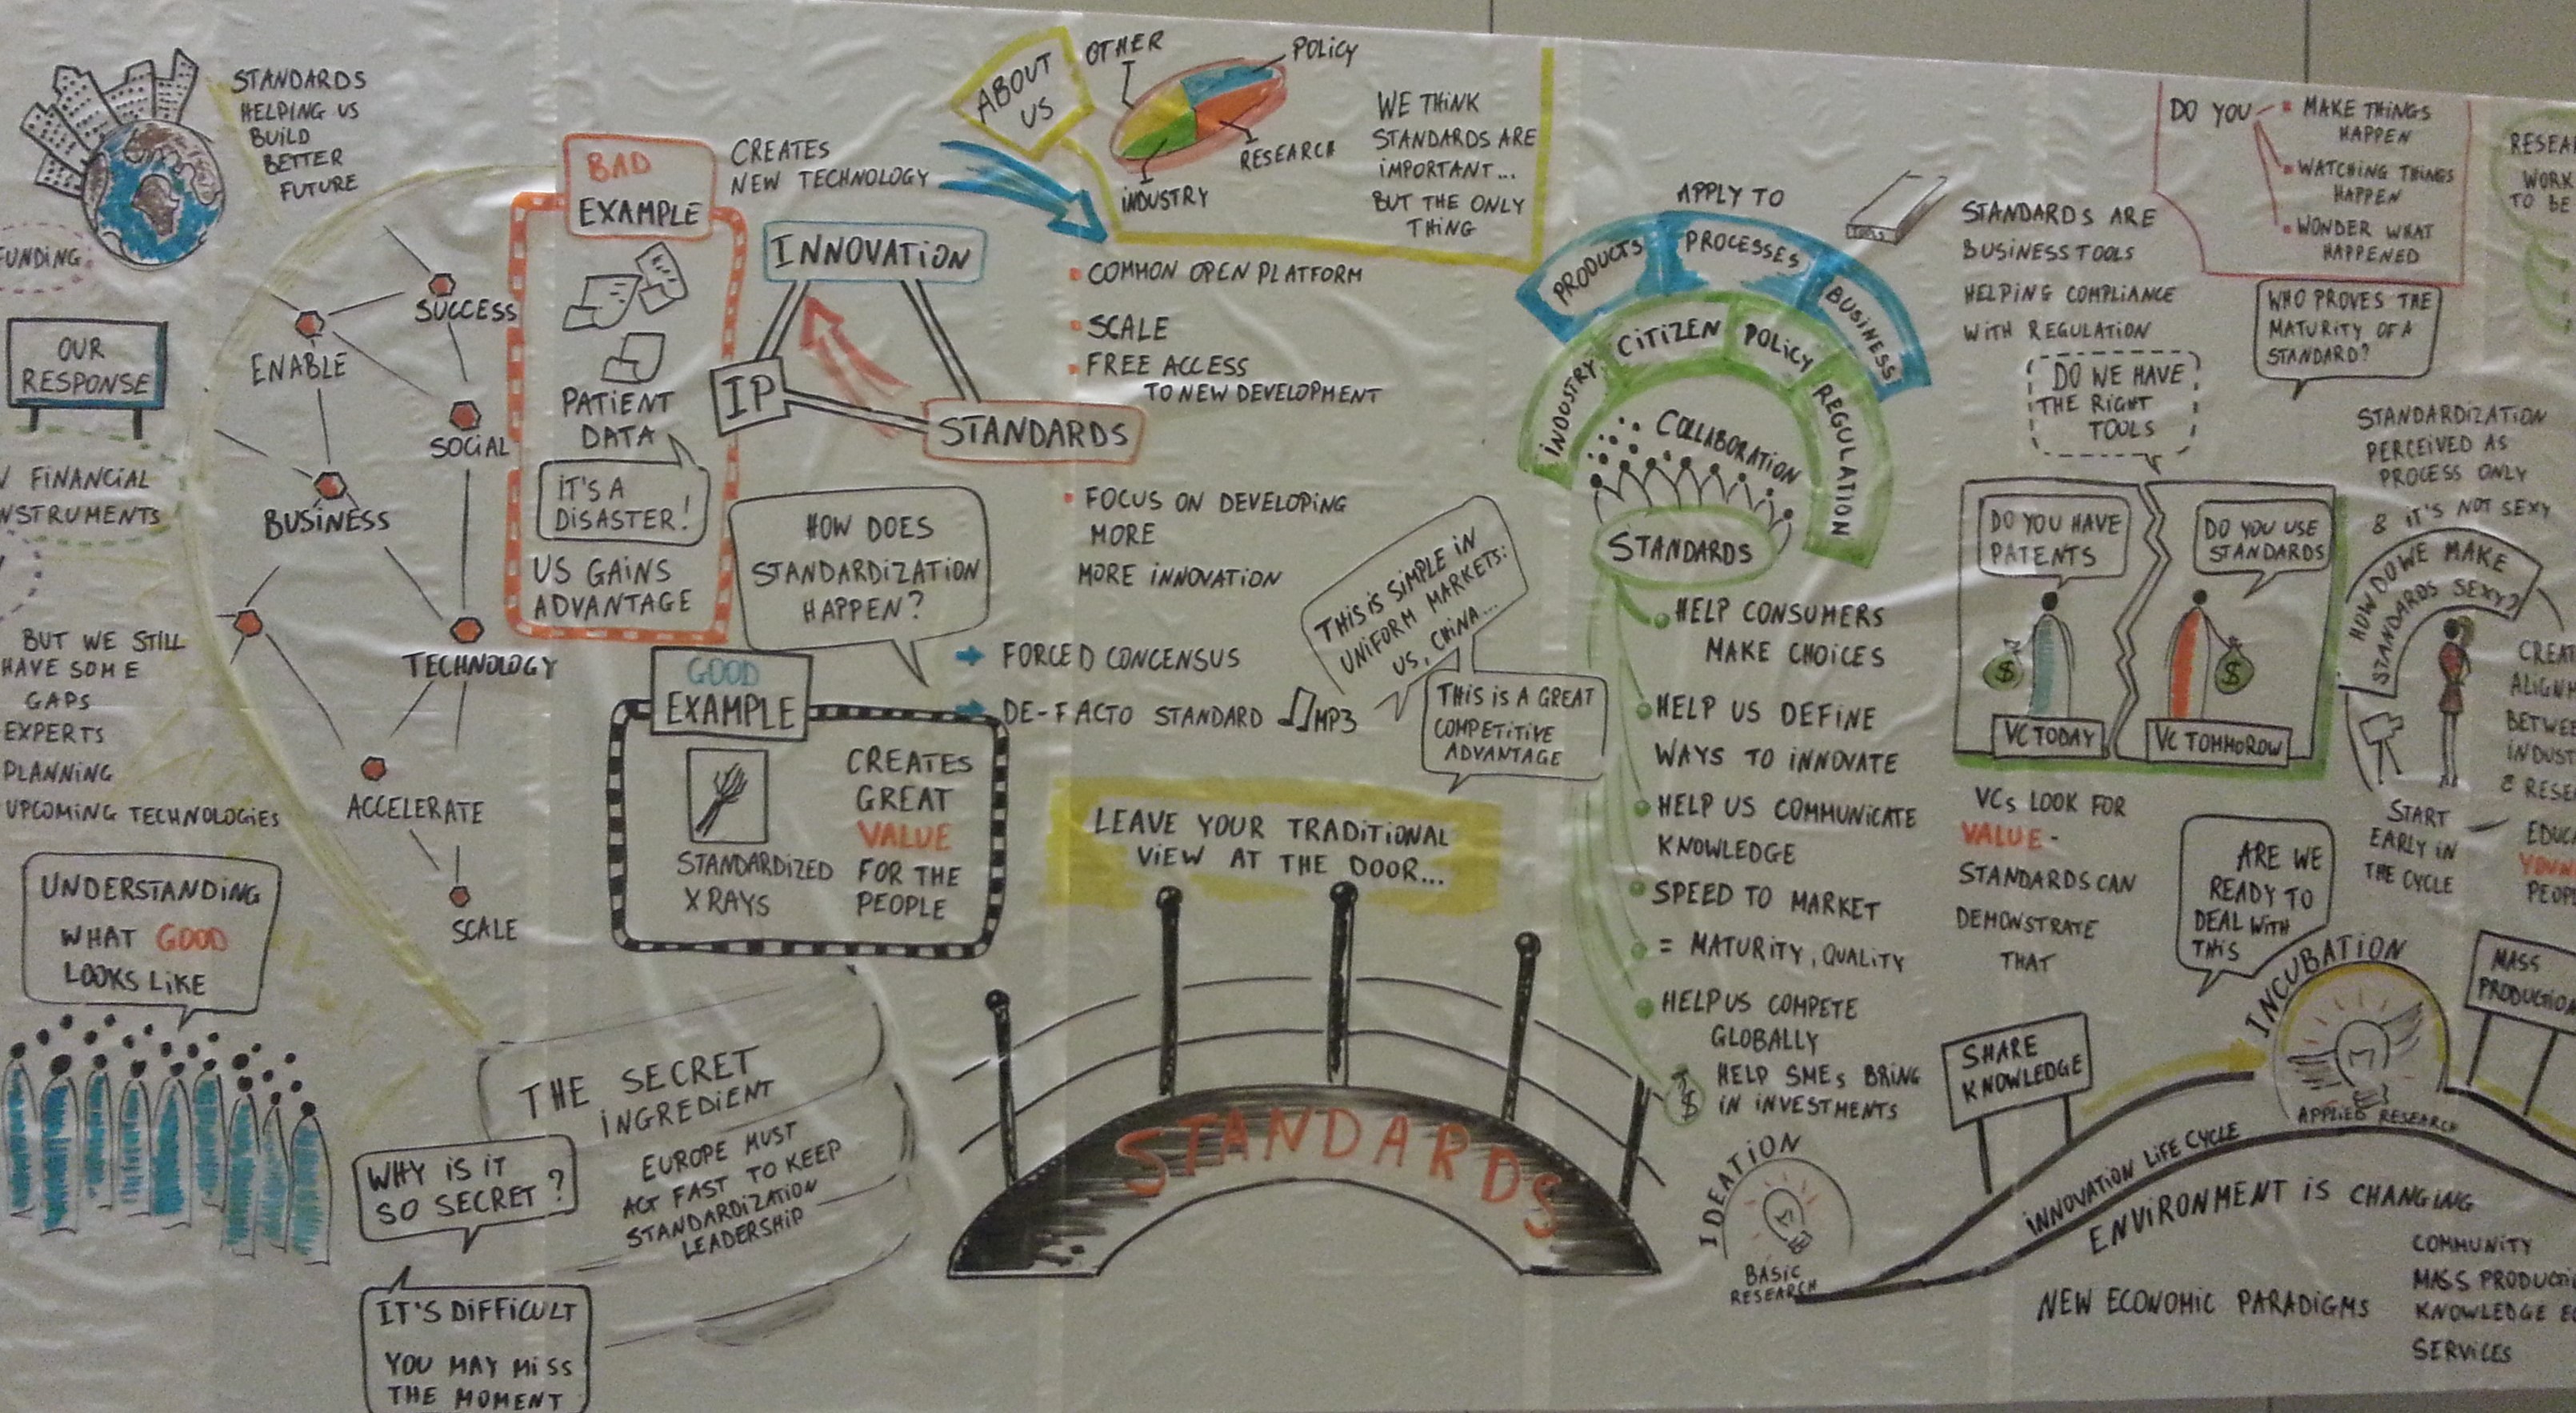 STANDARDS
HELPING US
BUILD
BETTER
FUTURE
FUNDING
OUR
RESPONSE
FINANCIAL
BUT WE STILL
HAVE SOME
GAPS
EXPERTS
PLANNING
UPCOMING TECHNOLOGIES
UNDERSTANDING
WHAT GOOD
LOOKS LIKE
SUCCESS
ENABLE
SOCIAL
BUSINESS
TECHNOLOGY
ACCELERATE
SCALE
BAD
EXAMPLE
PATIENT
DATA
IT'S A
DISASTER!
US GAINS
ADVANTAGE
CREATES
NEW TECHNOLOGY
INNOVATION
IP
STANDARDS
ABOUT
US
OTHER
POLICY
RESEARCH
INDUSTRY
WE THINK
STANDARDS ARE
IMPORTANT...
BUT THE ONLY
THING
COMMON OPEN PLATFORM
SCALE
FREE ACCESS
TO NEW DEVELOPMENT
FOCUS ON DEVELOPING
MORE
MORE INNOVATION
HOW DOES
STANDARDIZATION
HAPPEN?
FORCED CONCENSUS
DE-FACTO STANDARD MP3
THIS IS SIMPLE IN
UNIFORM MARKETS:
US, CHINA...
THIS IS A GREAT
COMPETITIVE
ADVANTAGE
GOOD
EXAMPLE
STANDARDIZED
X RAYS
CREATES
GREAT
VALUE
FOR THE
PEOPLE
LEAVE YOUR TRADITIONAL
VIEW AT THE DOOR...
STANDARDS
THE SECRET
INGREDIENT
EUROPE MUST
ACT FAST TO KEEP
STANDARDIZATION
LEADERSHIP
WHY IS IT
SO SECRET?
IT'S DIFFICULT
YOU MAY MISS
THE MOMENT
APPLY TO
PRODUCTS
PROCESSES
BUSINESS
INDUSTRY
CITIZEN
POLICY
REGULATION
COLLABORATION
STANDARDS
HELP CONSUMERS
MAKE CHOICES
HELP US DEFINE
WAYS TO INNOVATE
HELP US COMMUNICATE
KNOWLEDGE
SPEED TO MARKET
= MATURITY, QUALITY
HELP US COMPETE
GLOBALLY
$ HELP SMEs BRING
IN INVESTMENTS
STANDARDS ARE
BUSINESS TOOLS
HELPING COMPLIANCE
WITH REGULATION
DO WE HAVE
THE RIGHT
TOOLS
DO YOU HAVE
PATENTS
$
VC TODAY
DO YOU USE
STANDARDS
$
VC TOMMOROW
VCs LOOK FOR
VALUE -
STANDARDS CAN
DEMONSTRATE
THAT
DO YOU
MAKE THINGS
HAPPEN
WATCHING THINGS
HAPPEN
WONDER WHAT
HAPPENED
WHO PROVES THE
MATURITY OF A
STANDARD?
STANDARDIZATION
PERCEIVED AS
PROCESS ONLY
& IT'S NOT SEXY
HOW DO WE MAKE
STANDARDS SEXY?
START
EARLY IN
THE CYCLE
WORK
TO BE
ARE WE
READY TO
DEAL WITH
THIS
IDEATION
BASIC
RESEARCH
SHARE
KNOWLEDGE
INCUBATION
APPLIED RESEARCH
MASS
INNOVATION LIFE CYCLE
ENVIRONMENT IS CHANGING
NEW ECONOMIC PARADIGMS
COMMUNITY
MASS
KNOWLEDGE
SERVICES